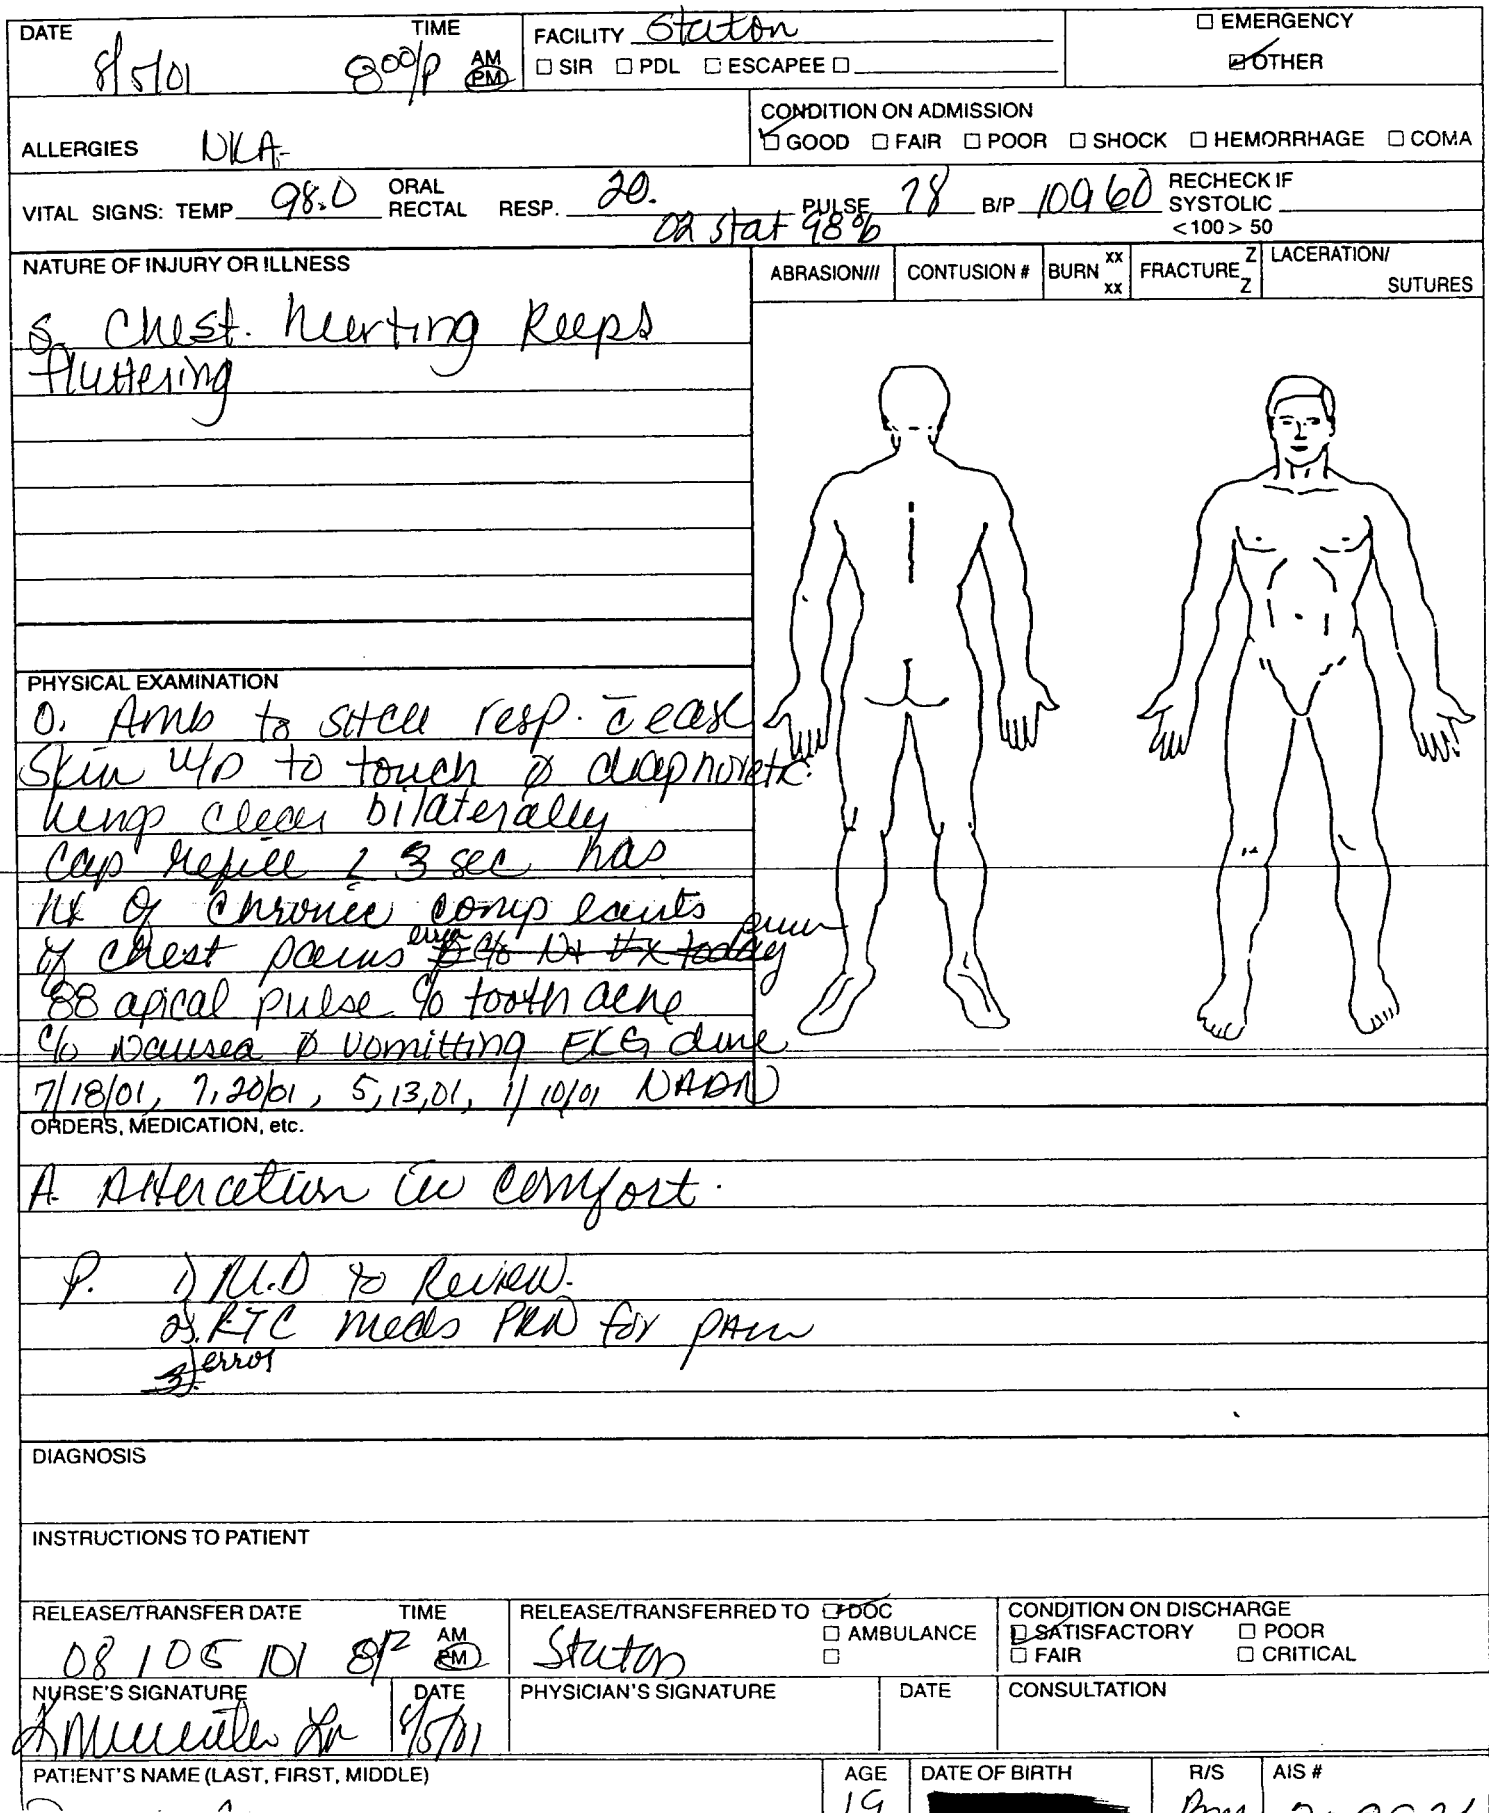 DATE TIME FACILITY Staton ☐ EMERGENCY
8/5/01 8:00/P AM (PM) ☐ SIR ☐ PDL ☐ ESCAPEE ☐ ☑ OTHER
CONDITION ON ADMISSION
ALLERGIES NKA ☑ GOOD ☐ FAIR ☐ POOR ☐ SHOCK ☐ HEMORRHAGE ☐ COMA
VITAL SIGNS: TEMP 98.0 ORAL RECTAL RESP. 20. PULSE 78 B/P 109 60 RECHECK IF SYSTOLIC <100> 50
O2 stat 98%
NATURE OF INJURY OR ILLNESS
ABRASION/// CONTUSION # BURN xx xx FRACTURE Z Z LACERATION/ SUTURES
S. Chest. hurting keeps
fluttering
PHYSICAL EXAMINATION
O. Amb to resp. c̄ ease
Skin W/D to touch Ø diaphoretic.
lungs clear bilaterally
cap refill < 3 sec has
hx of chronic complaints
of chest pains error today
88 apical pulse c/o tooth ache
c/o Nausea Ø vomitting EKG done
7/18/01, 7,20/01, 5,13,01, 1/10/01
ORDERS, MEDICATION, etc.
A. Alteration in comfort.
P. 1) M.D to Review.
2). meds PRN for pain
3). error
DIAGNOSIS
INSTRUCTIONS TO PATIENT
RELEASE/TRANSFER DATE TIME RELEASE/TRANSFERRED TO ☑ DOC CONDITION ON DISCHARGE
08 / 05 / 01 8P AM (PM) Staton ☐ AMBULANCE ☑ SATISFACTORY ☐ POOR
☐ ☐ FAIR ☐ CRITICAL
NURSE'S SIGNATURE DATE PHYSICIAN'S SIGNATURE DATE CONSULTATION
8/5/01
PATIENT'S NAME (LAST, FIRST, MIDDLE) AGE DATE OF BIRTH R/S AIS #
19